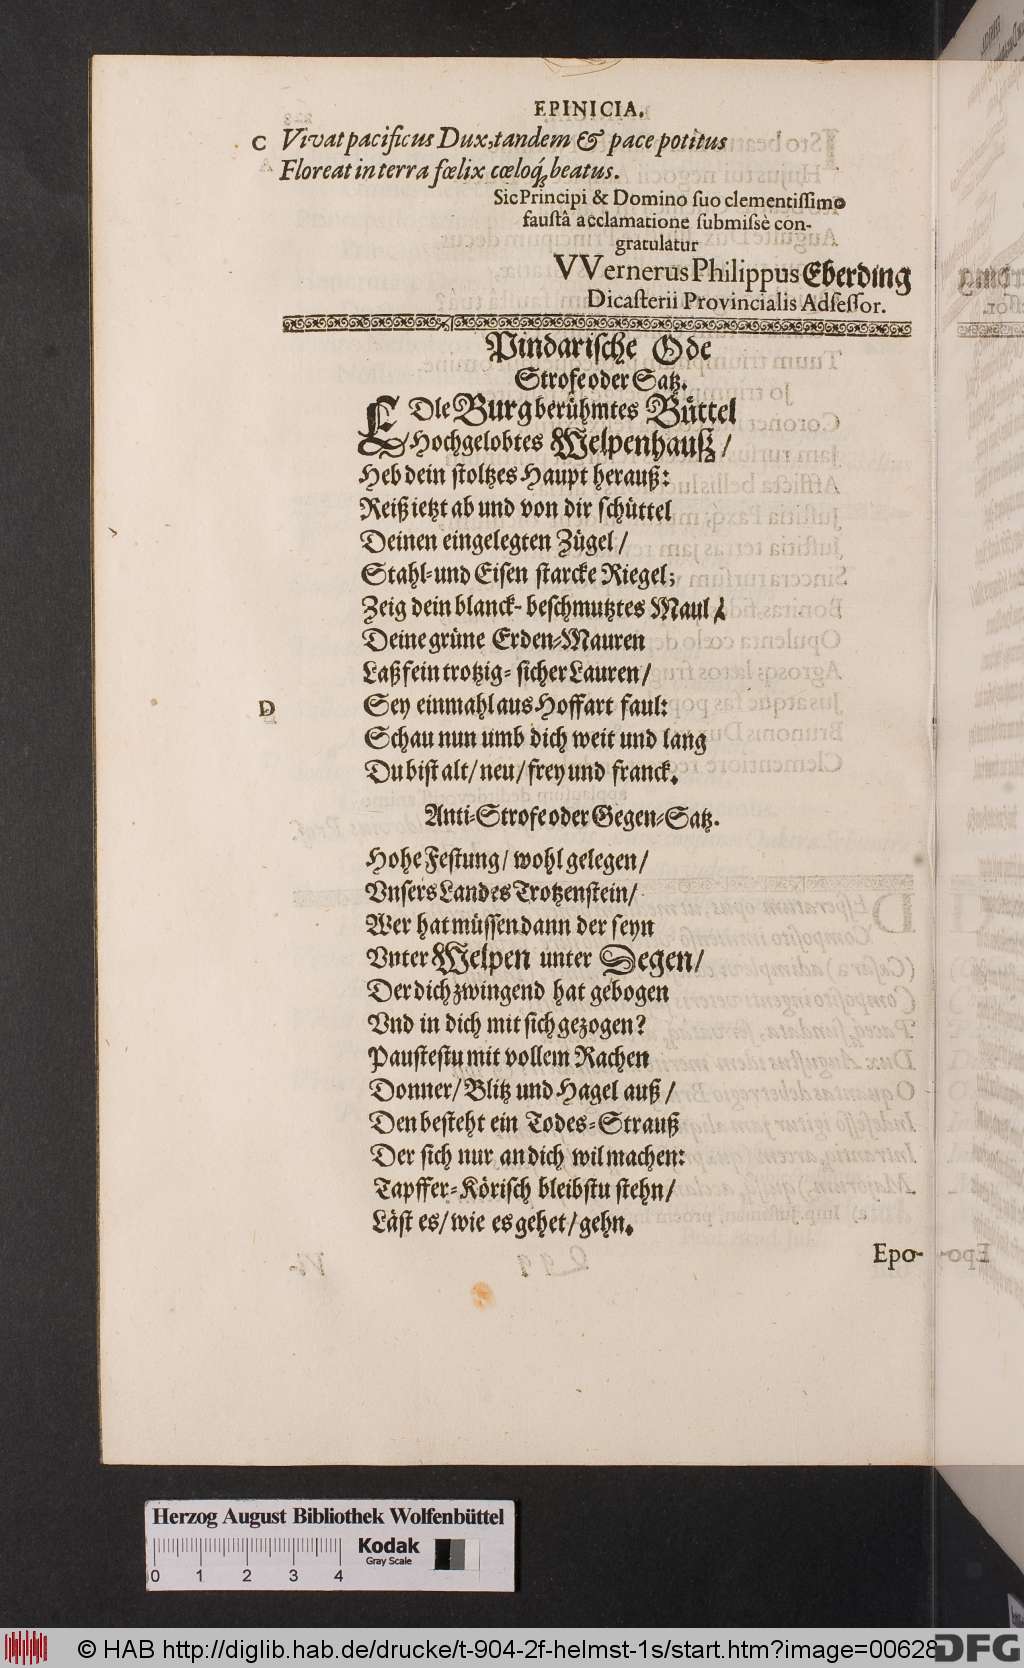 EPINICIA.
C Vivat pacificus Dux, tandem & pace potitus
Floreat in terra fœlix cœloq́; beatus.
Sic Principi & Domino suo clementissimo
faustâ acclamatione submissè con-
gratulatur
VVernerus Philippus Eberding
Dicasterii Provincialis Adsessor.
Pindarische Ode
Strofe oder Satz.
EDle Burg berühmtes Büttel
/ Hochgelobtes Welpenhauß /
Heb dein stoltzes Haupt herauß:
Reiß ietzt ab und von dir schüttel
Deinen eingelegten Zügel /
Stahl- und Eisen starcke Riegel;
Zeig dein blanck- beschmutztes Maul /
Deine grüne Erden-Mauren
Laß fein trotzig- sicher Lauren /
D Sey einmahl aus Hoffart faul:
Schau nun umb dich weit und lang
Du bist alt / neu / frey und franck.
Anti-Strofe oder Gegen-Satz.
Hohe Festung / wohl gelegen /
Vnsers Landes Trotzenstein /
Wer hat müssen dann der seyn
Vnter Welpen unter Degen /
Der dich zwingend hat gebogen
Vnd in dich mit sich gezogen?
Paustestu mit vollem Rachen
Donner / Blitz und Hagel auß /
Den besteht ein Todes-Strauß
Der sich nur an dich wil machen:
Tapffer-Körisch bleibstu stehn /
Läst es / wie es gehet / gehn.
Epo-
Herzog August Bibliothek Wolfenbüttel
Kodak
Gray Scale
0 1 2 3 4
© HAB http://diglib.hab.de/drucke/t-904-2f-helmst-1s/start.htm?image=00628
DFG